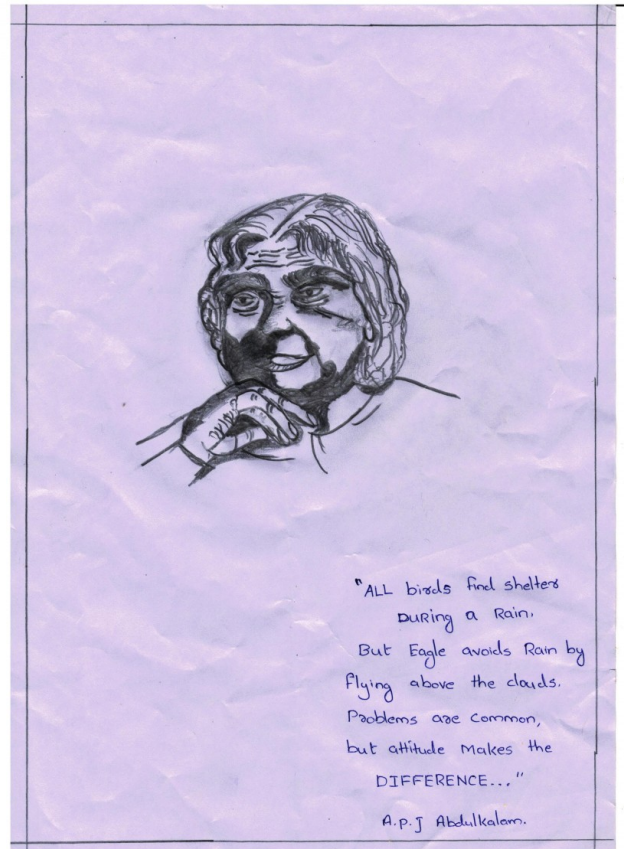 "ALL birds find shelter
DURing a Rain.
But Eagle avoids Rain by
flying above the clouds.
Problems are common,
but attitude Makes the
DIFFERENCE..."
A.P.J Abdulkalam.